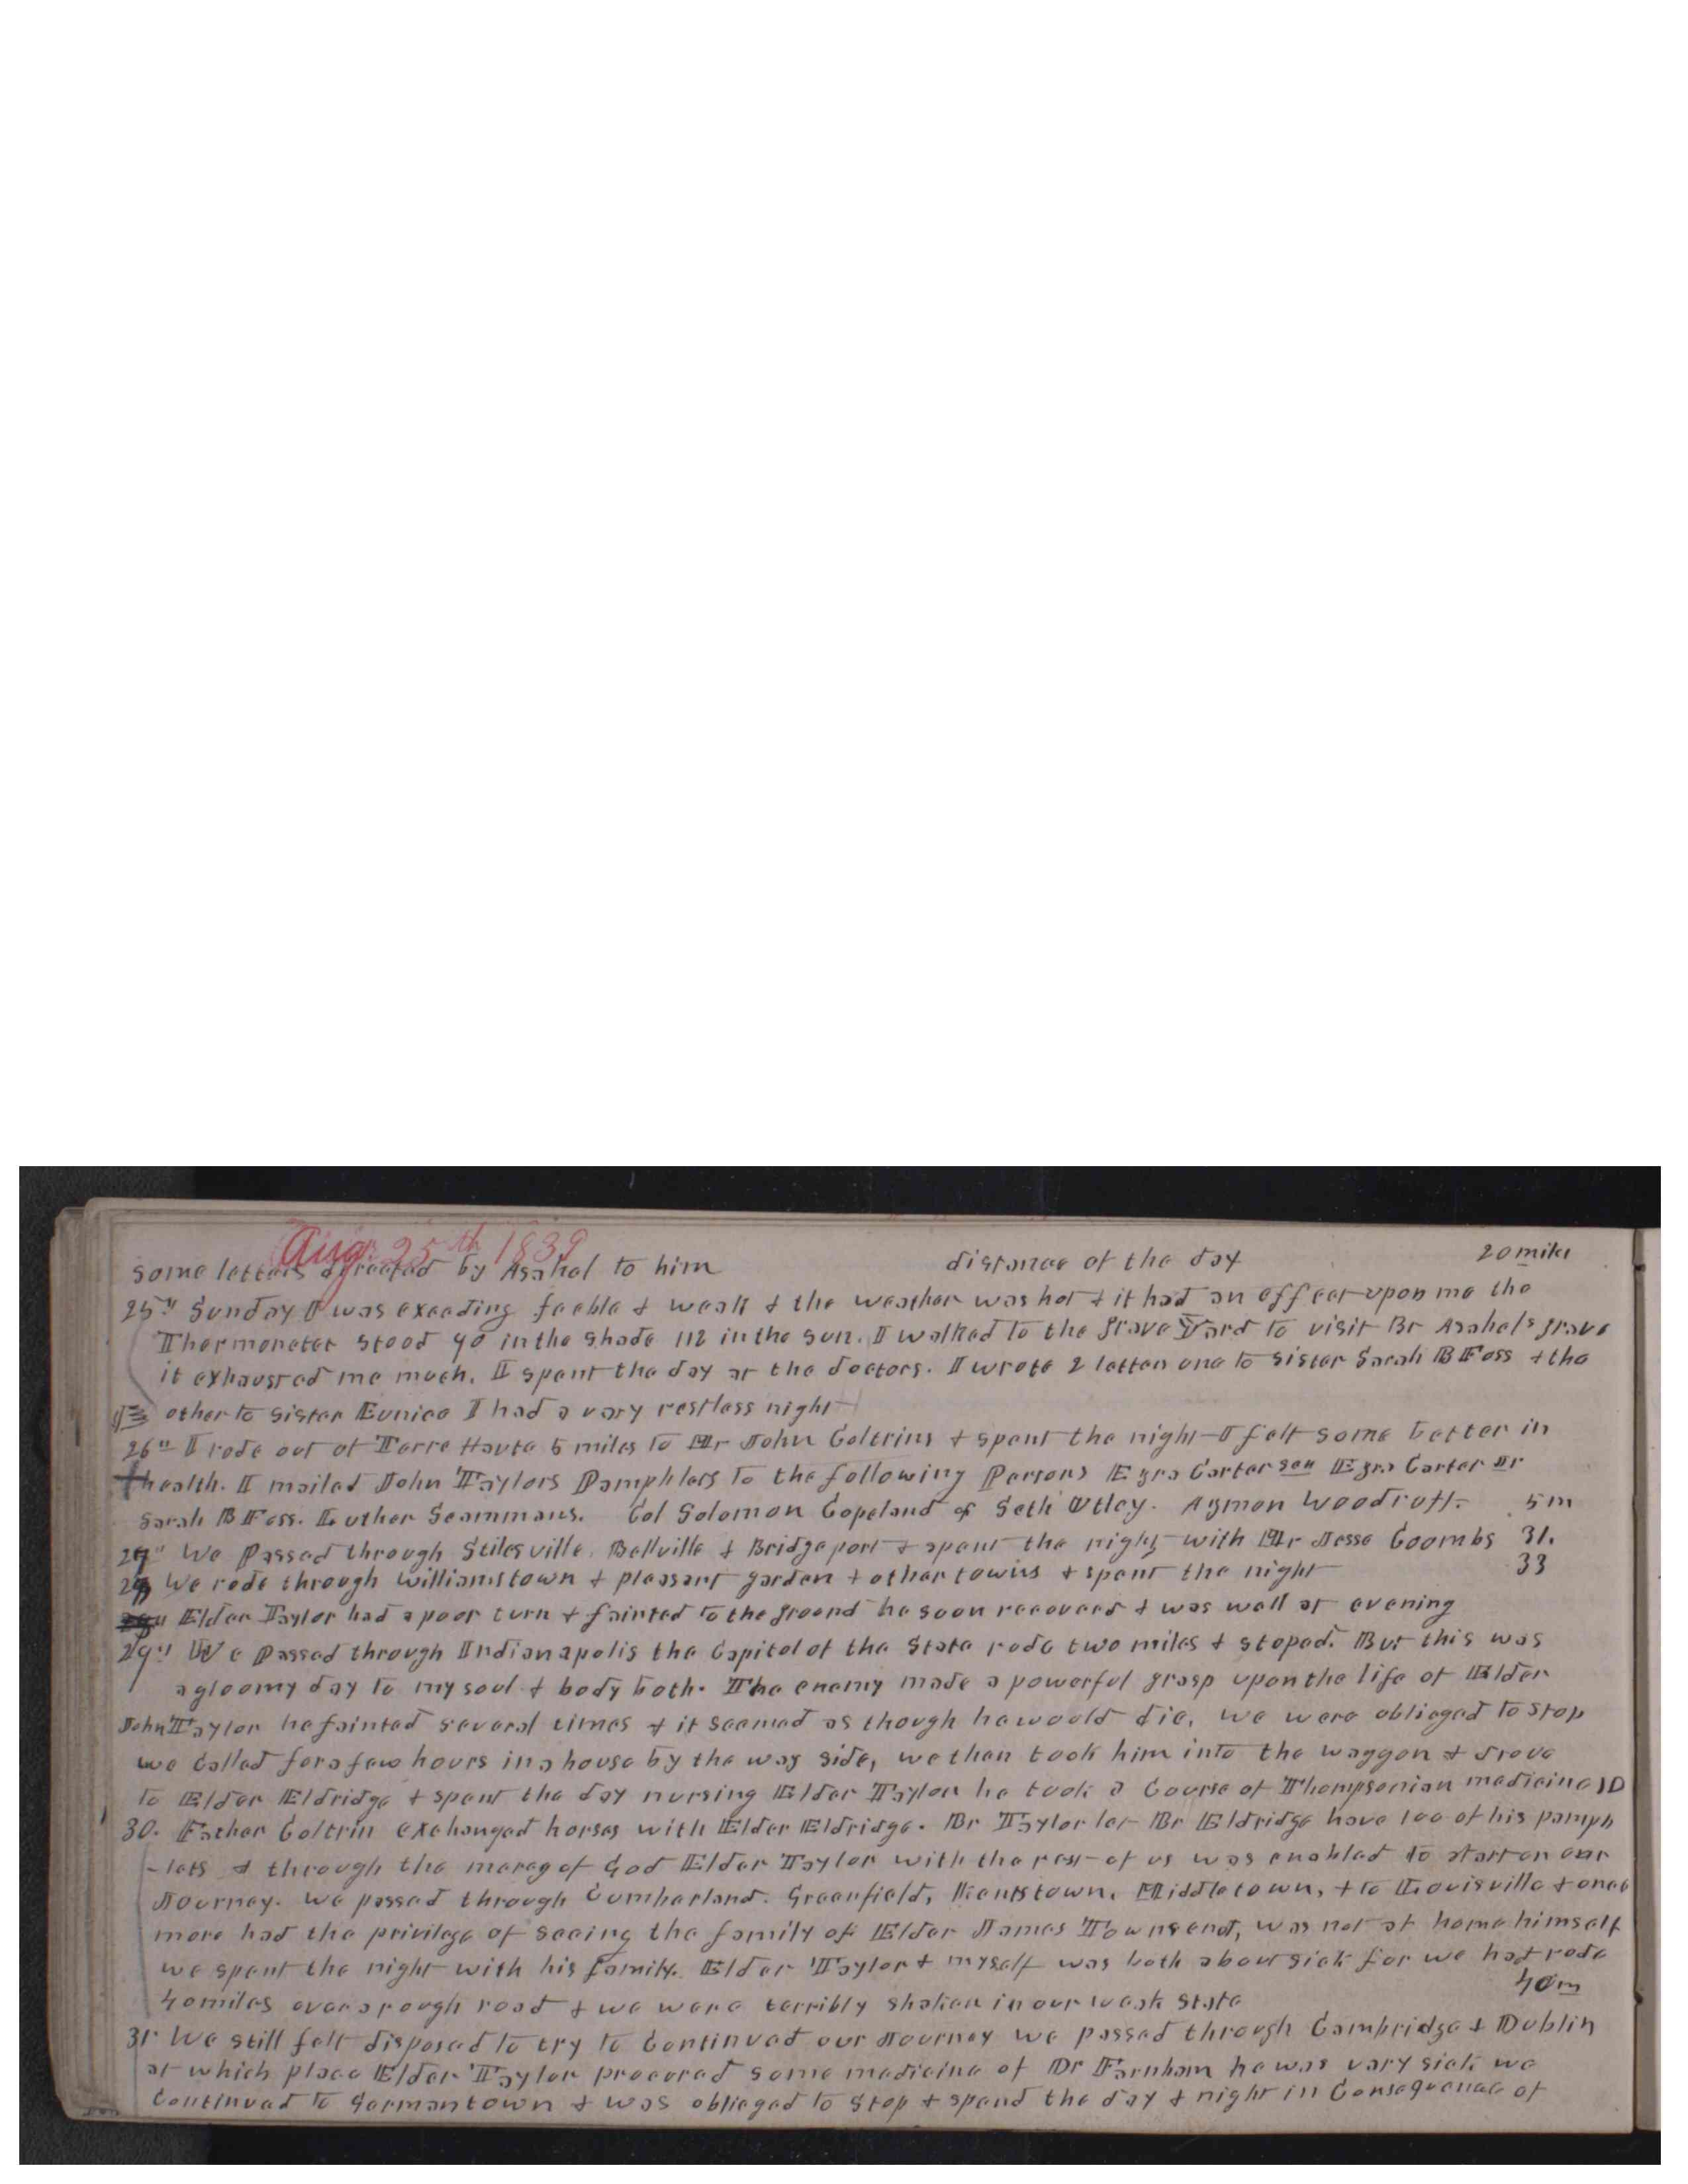 Aug. 25th 1839
some letters directed by Asahel to him distance of the day 20 miles
25th Sunday I was exceeding feeble & weak & the weather was hot & it had an effect upon me the
Thermoneter stood 90 in the shade 112 in the sun. I walked to the grave Yard to visit Br Asahels grave
it exhausted me much. I spent the day at the doctors. I wrote 2 letters one to Sister Sarah B Foss & the
other to Sister Eunice I had a very restless night
26th I rode out of Terre Haute 5 miles to Mr John Coltrins & spent the night I felt some better in
health. I mailed John Taylors Pamphlets to the following Persons Ezra Carter sen Ezra Carter Jr
Sarah B Foss. Luther Scammans. Col Solomon Copeland & Seth Utley. Azmon Woodruff. 5 m
We Passed through Stilesville. Bellville & Bridgeport & spent the night with Mr Jesse Coombs 31.
We rode through Williamstown & pleasant garden & other towns & spent the night 33
Elder Taylor had a poor turn & fainted to the ground he soon recovered & was well at evening
29th We Passed through Indianapolis the Capitol of the State rode two miles & stoped. But this was
a gloomy day to my soul & body both. The enemy made a powerful grasp upon the life of Elder
John Taylor he fainted several times & it seemed as though he would die, we were oblieged to stop
we Called for a few hours in a house by the way side, we then took him into the waggon & drove
to Elder Eldridge & spent the day nursing Elder Taylor he took a Course of Thompsonian medicine 10
30. Father Coltrin exchanged horses with Elder Eldridge. Br Taylor let Br Eldridge have 100 of his pamph
-lets & through the mercy of God Elder Taylor with the rest of us was enabled to start on our
Journey. We passed through Cumberland. Greenfield, Knightstown, Middletown, & to Louisville & once
more had the privilege of seeing the family of Elder James Townsend, was not at home himself
we spent the night with his family. Elder Taylor & myself was both about sick for we had rode
40 miles over a rough road & we were terribly shaken in our weak state 40 m
31st We still felt disposed to try to Continued our Journey we passed through Cambridge & Dublin
at which place Elder Taylor procured some medicine of Dr Farnham he was very sick we
Continued to Germantown & was oblieged to Stop & spend the day & night in Consequence of